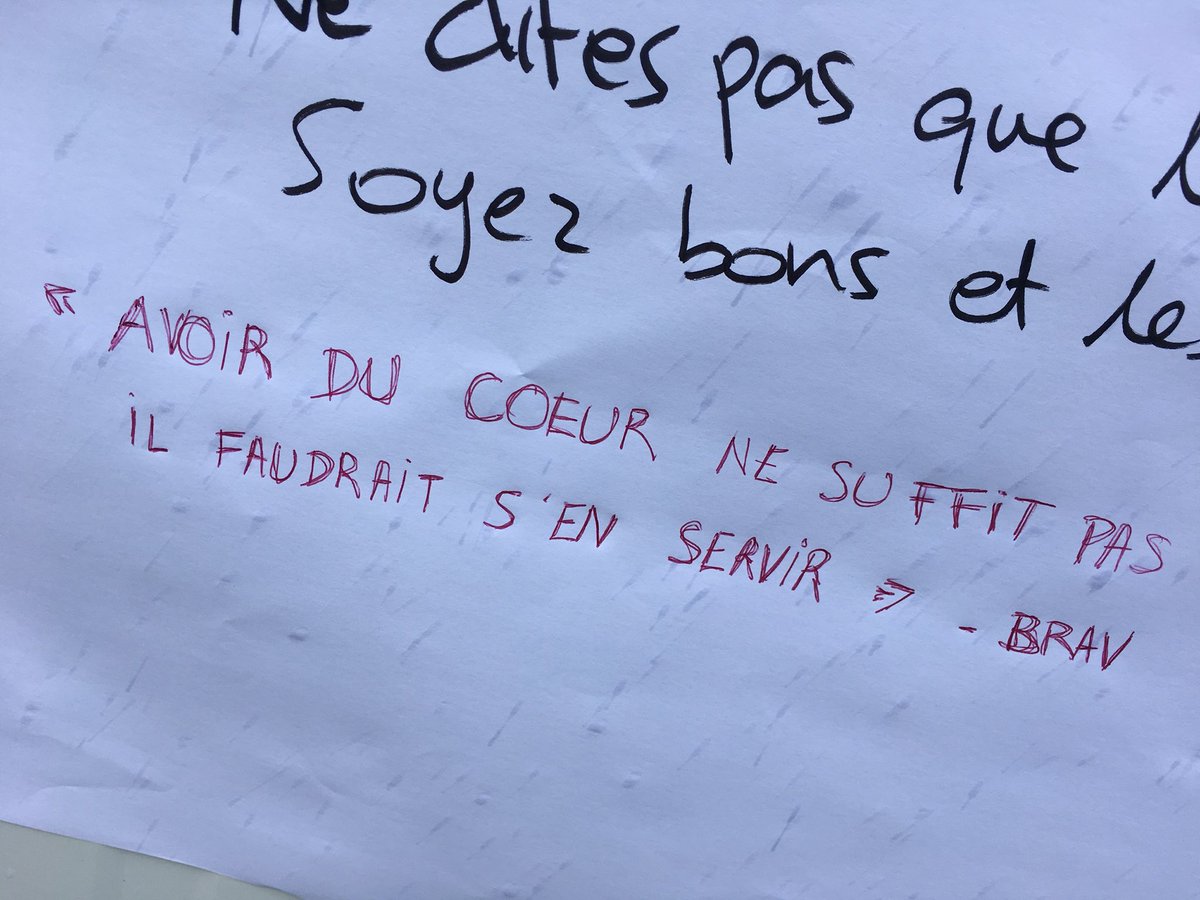 Ne dites pas que
Soyez bons et
« AVOIR DU COEUR NE SUFFIT PAS
IL FAUDRAIT S'EN SERVIR » - BRAV